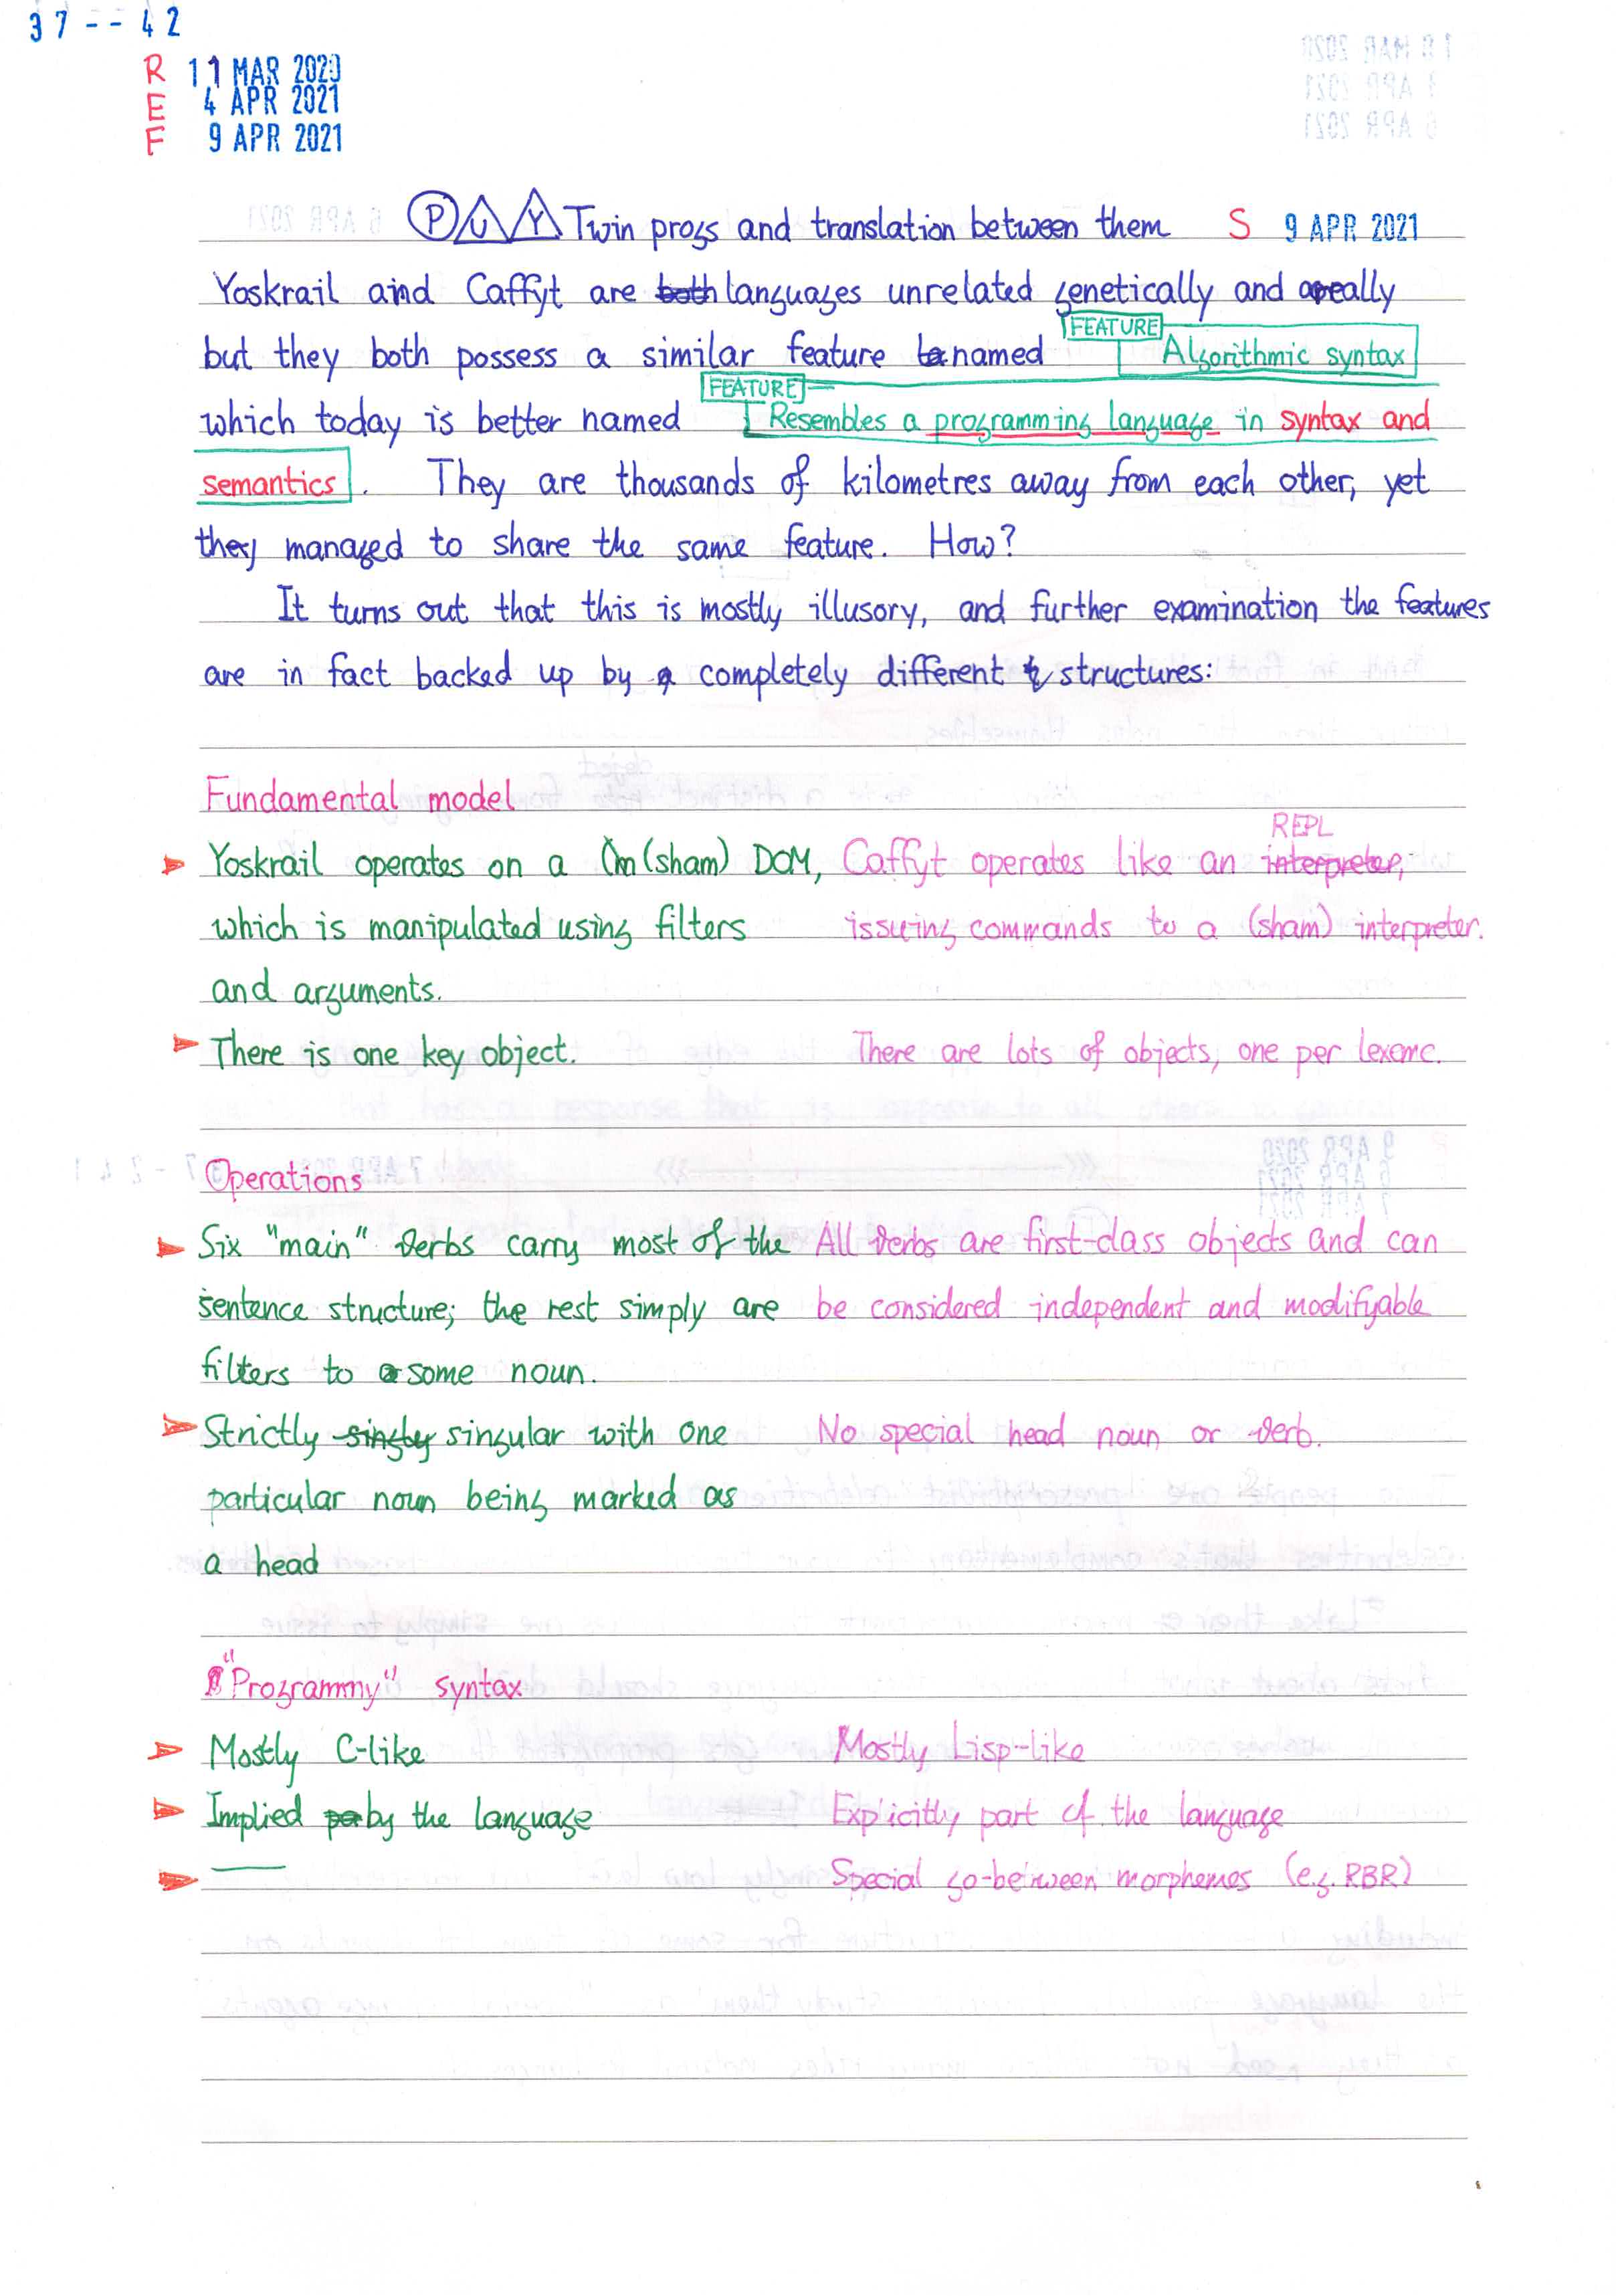 37--42
R 11 MAR 2020
E 4 APR 2021
F 9 APR 2021
P U Y Twin progs and translation between them S 9 APR 2021
Yoskrail and Caffyt are both languages unrelated genetically and areally
but they both possess a similar feature named FEATURE Algorithmic syntax
which today is better named FEATURE Resembles a programming language in syntax and
semantics. They are thousands of kilometres away from each other, yet
they managed to share the same feature. How?
It turns out that this is mostly illusory, and further examination the features
are in fact backed up by completely different structures:
Fundamental model
Yoskrail operates on a (sham) DOM,
which is manipulated using filters
and arguments.
Caffyt operates like an interpreter, REPL
issuing commands to a (sham) interpreter.
There is one key object.
There are lots of objects, one per lexeme.
Operations
Six "main" verbs carry most of the
sentence structure; the rest simply are
filters to some noun.
All verbs are first-class objects and can
be considered independent and modifyable
Strictly singly singular with one
particular noun being marked as
a head
No special head noun or verb.
"Programmy" syntax
Mostly C-like
Mostly Lisp-like
Implied by the language
Explicitly part of the language
Special go-between morphemes (e.g. RBR)